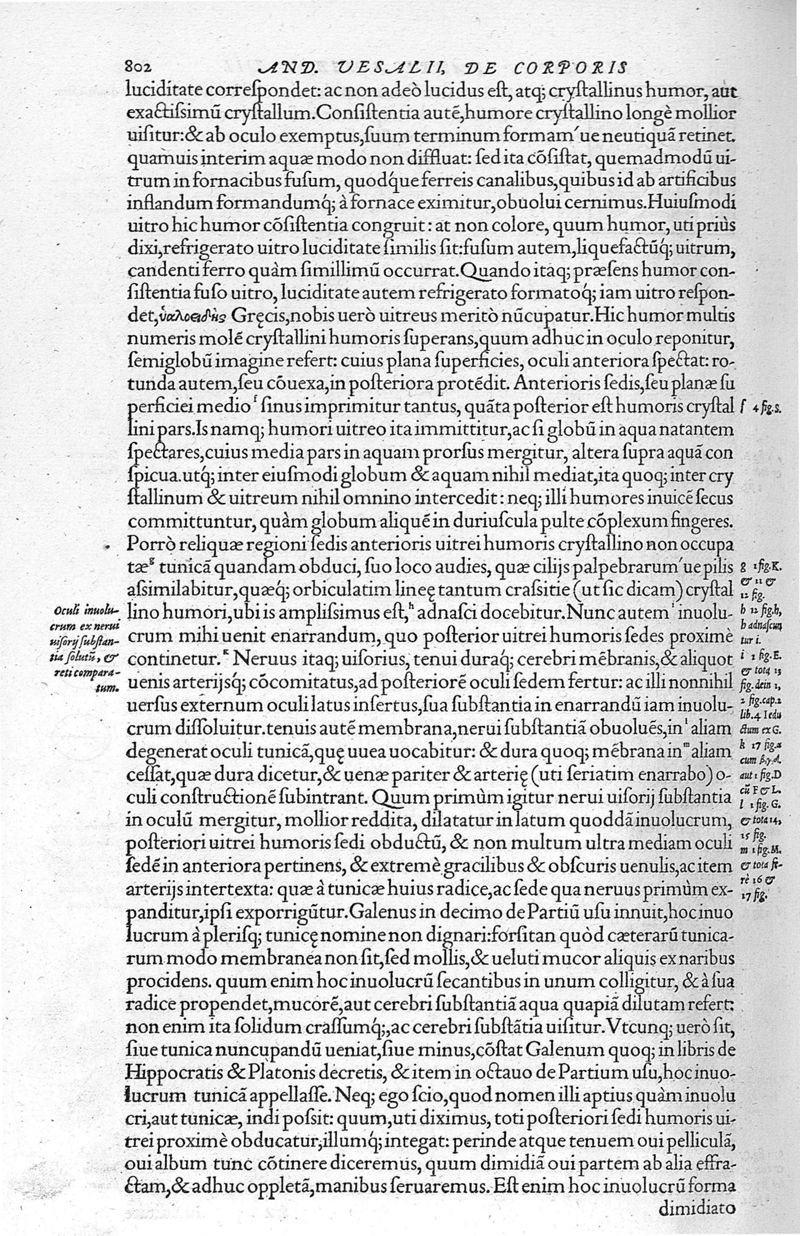 802 AND. VESALII, DE CORPORIS
luciditate correſpondet: ac non adeò lucidus eſt, atq; cryſtallinus humor, aut
exactiſsimũ cryſtallum. Conſiſtentia autẽ, humore cryſtallino longè mollior
uiſitur: & ab oculo exemptus, ſuum terminum formam'ue neutiquã retinet.
quamuis interim aquæ modo non diffluat: ſed ita cõſiſtat, quemadmodũ ui-
trum in fornacibus fuſum, quodq́ue ferreis canalibus, quibus id ab artificibus
inflandum formandumq́; à fornace eximitur, obuolui cernimus. Huiuſmodi
uitro hic humor cõſiſtentia congruit: at non colore, quum humor, uti priùs
dixi, refrigerato uitro luciditate ſimilis ſit: fuſum autem, liquefactũq́; uitrum,
candenti ferro quàm ſimillimũ occurrat. Quando itaq; præſens humor con-
ſiſtentia fuſo uitro, luciditate autem refrigerato formatoq́; iam uitro reſpon-
det, ὑαλοειδὴς Gręcis, nobis uerò uitreus meritò nũcupatur. Hic humor multis
numeris molẽ cryſtallini humoris ſuperans, quum adhuc in oculo reponitur,
ſemiglobũ imagine refert: cuius plana ſuperficies, oculi anteriora ſpectat: ro-
tunda autem, ſeu cõuexa, in poſteriora protẽdit. Anterioris ſedis, ſeu planæ ſu
perficiei medio ᶠ ſinus imprimitur tantus, quãta poſterior eſt humoris cryſtal
lini pars. Is namq; humori uitreo ita immittitur, ac ſi globũ in aqua natantem
ſpectares, cuius media pars in aquam prorſus mergitur, altera ſupra aquã con
ſpicua. utq́; inter eiuſmodi globum & aquam nihil mediat, ita quoq; inter cry
ſtallinum & uitreum nihil omnino intercedit: neq; illi humores inuicẽ ſecus
committuntur, quàm globum aliquẽ in duriuſcula pulte cõplexum fingeres.
Porrò reliquæ regioni ſedis anterioris uitrei humoris cryſtallino non occupa
tæ ᵍ tunicã quandam obduci, ſuo loco audies, quæ cilijs palpebrarum'ue pilis
aſsimilabitur, quæq́; orbiculatim lineę tantum craſsitie (ut ſic dicam) cryſtal
lino humori, ubi is ampliſsimus eſt, ʰ adnaſci docebitur. Nunc autem ⁱ inuolu-
crum mihi uenit enarrandum, quo poſterior uitrei humoris ſedes proximè
continetur. ᵏ Neruus itaq; uiſorius, tenui duraq́; cerebri mẽbranis, & aliquot
uenis arterijsq́; cõcomitatus, ad poſteriorẽ oculi ſedem fertur: ac illi nonnihil
uerſus externum oculi latus inſertus, ſua ſubſtantia in enarrandũ iam inuolu-
crum diſſoluitur. tenuis autẽ membrana, nerui ſubſtantiã obuoluẽs, in ˡ aliam
degenerat oculi tunicã, quę uuea uocabitur: & dura quoq; mẽbrana in ᵐ aliam
ceſſat, quæ dura dicetur, & uenæ pariter & arterię (uti ſeriatim enarrabo) o-
culi conſtructionẽ ſubintrant. Quum primùm igitur nerui uiſorij ſubſtantia
in oculũ mergitur, mollior reddita, dilatatur in latum quoddã inuolucrum,
poſteriori uitrei humoris ſedi obductũ, & non multum ultra mediam oculi
ſedẽ in anteriora pertinens, & extremè gracilibus & obſcuris uenulis, ac item
arterijs intertexta: quæ à tunicæ huius radice, ac ſede qua neruus primùm ex-
panditur, ipſi exporrigũtur. Galenus in decimo de Partiũ uſu innuit, hoc inuo
lucrum à pleriſq; tunicę nomine non dignari: forſitan quòd cæterarũ tunica-
rum modo membranea non ſit, ſed mollis, & ueluti mucor aliquis ex naribus
procidens. quum enim hoc inuolucrũ ſecantibus in unum colligitur, & à ſua
radice propendet, mucorẽ, aut cerebri ſubſtantiã aqua quapiã dilutam refert:
non enim ita ſolidum craſſumq́;, ac cerebri ſubſtãtia uiſitur. Vtcunq; uerò ſit,
ſiue tunica nuncupandũ ueniat, ſiue minus, cõſtat Galenum quoq; in libris de
Hippocratis & Platonis decretis, & item in octauo de Partium uſu, hoc inuo-
lucrum tunicã appellaſſe. Neq; ego ſcio, quod nomen illi aptius quàm inuolu
cri, aut tunicæ, indi poſsit: quum, uti diximus, toti poſteriori ſedi humoris ui-
trei proximè obducatur, illumq́; integat: perinde atque tenuem oui pelliculã,
oui album tunc cõtinere diceremus, quum dimidiã oui partem ab alia effra-
ctam, & adhuc oppletã, manibus ſeruaremus. Eſt enim hoc inuolucrũ forma
dimidiato
Oculi inuolu-
crum ex nerui
uiſorij ſubſtan-
tia ſolutũ, &
reti compara-
tum.
f 4 fig. S.
g 1 fig. K.
& 11 &
12 fig.
h 12 fig. h,
h adnaſcun
tur i.
i 1 fig. E.
& tota 13
fig. dein 1,
2 fig. cap. 2
lib. 4 I edu
ctum ex G.
k 17 fig. a
cum β, γ, d.
aut 1 fig. D
cũ F & L.
l 1 fig. G.
& tota 14,
15 fig.
m 1 fig. M.
& tota fe-
rè 16 &
17 fig.